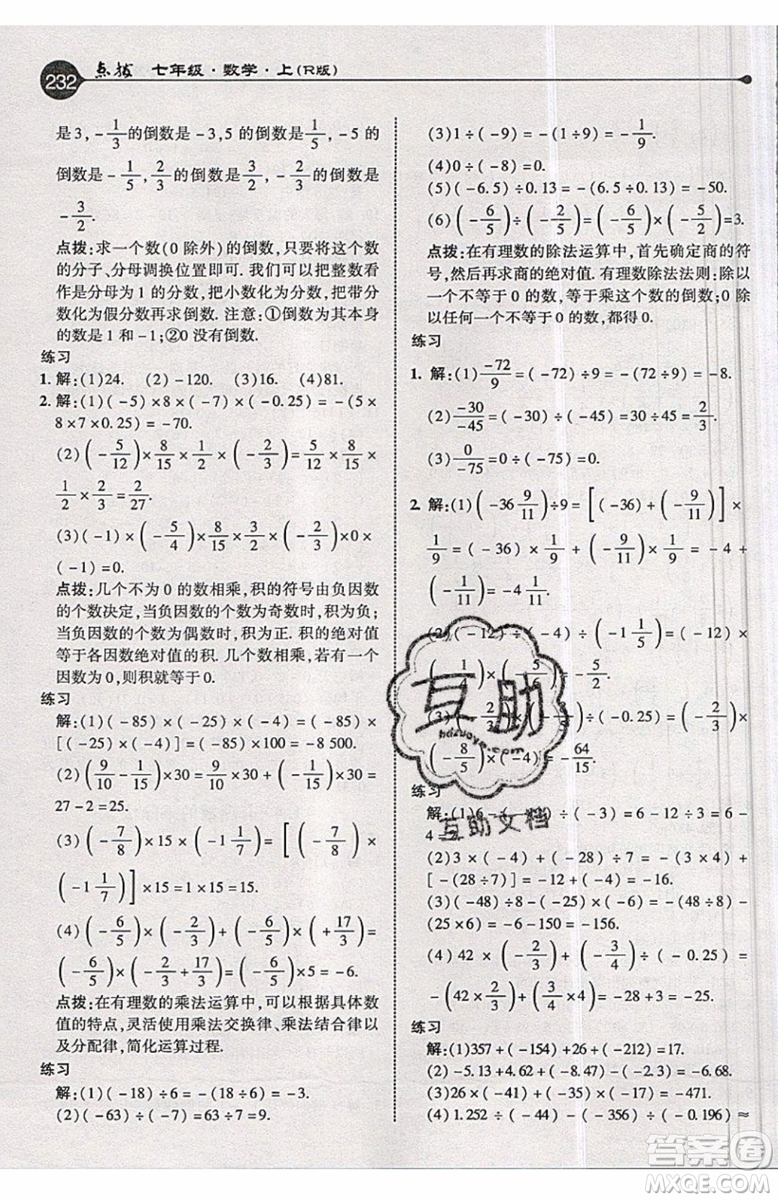 232 点拨 七年级·数学·上(R版)
是3,-1/3的倒数是-3,5的倒数是1/5,-5的
倒数是-1/5,2/3的倒数是3/2,-2/3的倒数是
-3/2.
点拨:求一个数(0除外)的倒数,只要将这个数
的分子、分母调换位置即可.我们可以把整数看
作是分母为1的分数,把小数化为分数,把带分
数化为假分数再求倒数.注意:①倒数为其本身
的数是1和-1;②0没有倒数.
练习
1. 解:(1)24. (2)-120. (3)16. (4)81.
2. 解:(1)(-5)×8×(-7)×(-0.25)=-(5×
8×7×0.25)=-70.
(2)(-5/12)×8/15×1/2×(-2/3)=5/12×8/15×
1/2×2/3=2/27.
(3)(-1)×(-5/4)×8/15×3/2×(-2/3)×0×
(-1)=0.
点拨:几个不为0的数相乘,积的符号由负因数
的个数决定,当负因数的个数为奇数时,积为负;
当负因数的个数为偶数时,积为正.积的绝对值
等于各因数绝对值的积.几个数相乘,有一个
因数为0,则积就等于0.
练习
解:(1)(-85)×(-25)×(-4)=(-85)×
[(-25)×(-4)]=-85×100=-8 500.
(2)(9/10-1/15)×30=9/10×30+(-1/15)×30=
27-2=25.
(3)(-7/8)×15×(-1 1/7)=[(-7/8)×
(-1 1/7)]×15=1×15=15.
(4)(-6/5)×(-2/3)+(-6/5)×(+17/3)=
(-6/5)×[(-2/3)+(+17/3)]=-6/5×5=-6.
点拨:在有理数的乘法运算中,可以根据具体数
值的特点,灵活使用乘法交换律、乘法结合律以
及分配律,简化运算过程.
练习
解:(1)(-18)÷6=-(18÷6)=-3.
(2)(-63)÷(-7)=63÷7=9.
(3)1÷(-9)=1×(-1/9)=-1/9.
(4)0÷(-8)=0.
(5)(-6.5)÷0.13=-(6.5÷0.13)=-50.
(6)(-6/5)÷(-2/5)=(-6/5)×(-5/2)=3.
点拨:在有理数的除法运算中,首先确定商的符
号,然后再求商的绝对值.有理数除法法则:除以
一个不等于0的数,等于乘这个数的倒数;0除
以任何一个不等于0的数,都得0.
练习
1. 解:(1)-72/9=(-72)÷9=-(72÷9)=-8.
(2)-30/-45=(-30)÷(-45)=30÷45=2/3.
(3)0/-75=0÷(-75)=0.
2. 解:(1)(-36 9/11)÷9=[(-36)+(-9/11)]×
1/9=(-36)×1/9+(-9/11)×1/9=-4+
(-1/11)=-4 1/11.
(2)(-12)÷(-4)÷(-1 1/5)=(-12)×
(-1/4)×(-5/6)=-5/2.
(3)(-2/3)×(-8/5)÷(-0.25)=(-2/3)×
(-8/5)×(-4)=-64/15.
练习
解:(1)6-(-12)÷(-3)=6-(12÷3)=6-
4=2.
(2)3×(-4)+(-28)÷7=-(3×4)+
[-(28÷7)]=-12+(-4)=-16.
(3)(-48)÷8-(-25)×(-6)=-(48÷8)-
(25×6)=-6-150=-156.
(4)42×(-2/3)+(-3/4)÷(-0.25)=
-(42×2/3)+(3/4×4)=-28+3=-25.
练习
解:(1)357+(-154)+26+(-212)=17.
(2)-5.13+4.62+(-8.47)-(-2.3)=-6.68.
(3)26×(-41)+(-35)×(-17)=-471.
(4)1.252÷(-44)-(-356)÷(-0.196)≈
互助
hdzuoye.com
互助文档
答案圈
MXQE.COM